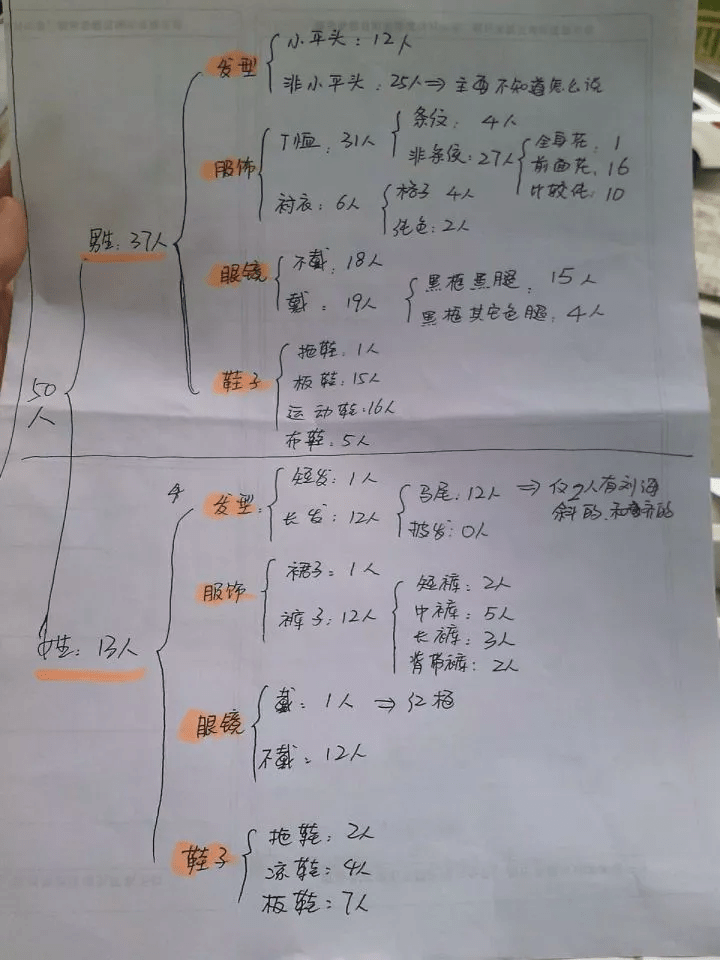 50人
男生：37人
发型
小平头：12人
非小平头：25人⇒主要不知道怎么说
服饰
T恤：31人
条纹：4人
非条纹：27人
全身花：1
前面花：16
比较纯：10
衬衣：6人
格子 4人
纯色：2人
眼镜
不戴：18人
戴：19人
黑框黑腿：15人
黑框其它色腿：4人
鞋子
拖鞋：1人
板鞋：15人
运动鞋：16人
布鞋：5人
女生：13人
发型
短发：1人
长发：12人
马尾：12人⇒仅2人有刘海
斜的
披发：0人
服饰
裙子：1人
裤子：12人
短裤：2人
中裤：5人
长裤：3人
背带裤：2人
眼镜
戴：1人⇒红框
不戴：12人
鞋子
拖鞋：2人
凉鞋：4人
板鞋：7人